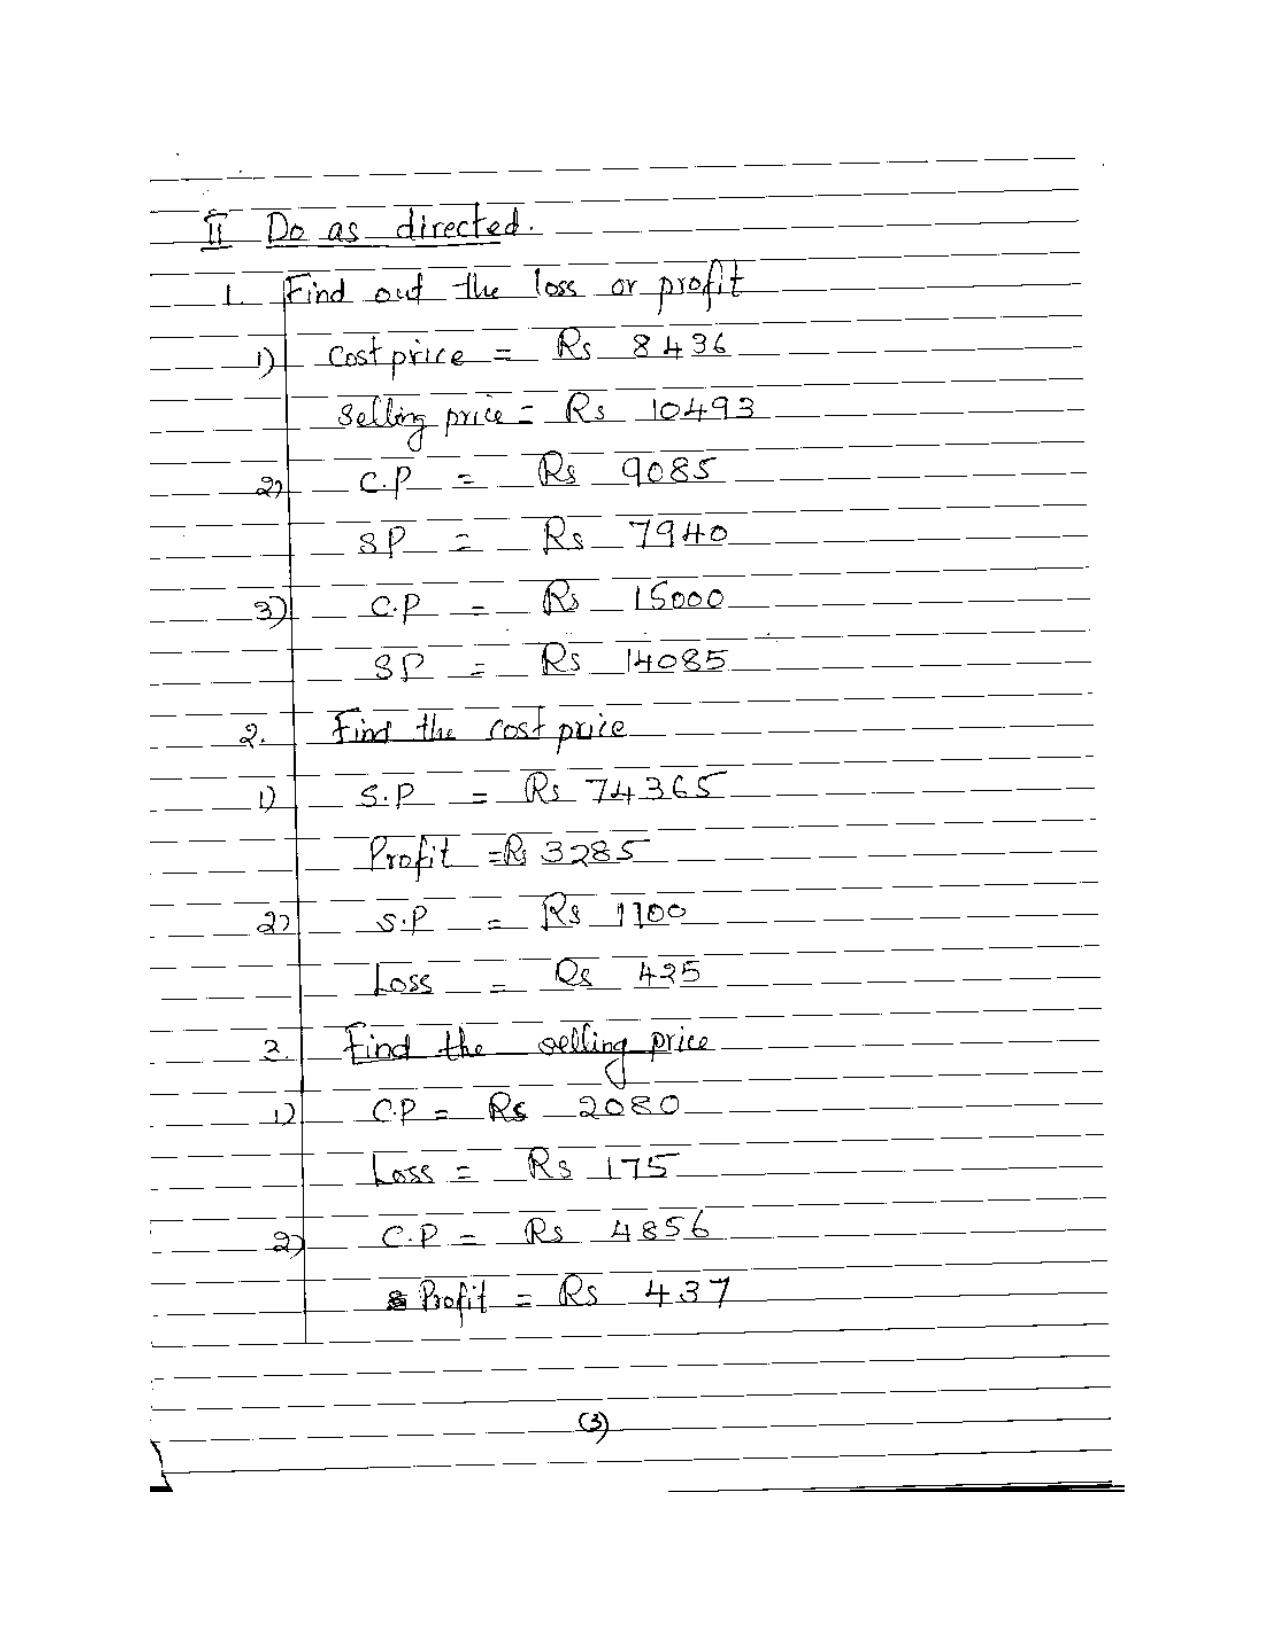 II Do as directed.
1. Find out the loss or profit
1) Cost price = Rs 8436
Selling price = Rs 10493
2) C.P = Rs 9085
SP = Rs 7940
3) C.P = Rs 15000
SP = Rs 14085
2. Find the cost price
1) S.P = Rs 74365
Profit = Rs 3285
2) S.P = Rs 1100
Loss = Rs 425
3. Find the selling price
1) C.P = Rs 2080
Loss = Rs 175
2) C.P = Rs 4856
Profit = Rs 437
(3)